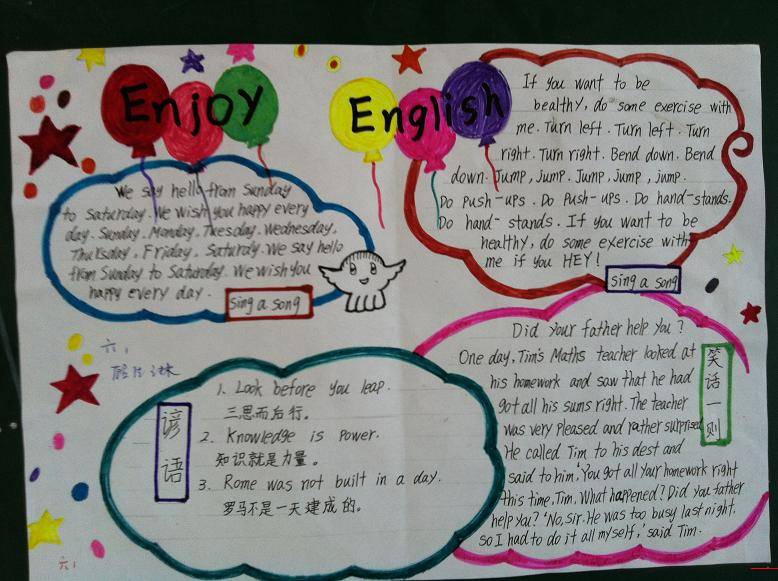 Enjoy English
We say hello from Sunday
to Saturday. We wish you happy every
day. Sunday, Monday, Tuesday, Wednesday,
Thursday, Friday, Saturdy. We say hello
from Sunday to Saturday. We wish you
happy every day.
Sing a song
If you want to be
bealthy, do some exercise with
me. Turn left. Turn left. Turn
right. Turn right. Bend down. Bend
down. Jump, jump. Jump, jump, jump.
Do push-ups. Do Push-ups. Do hand-stands.
Do hand-stands. If you want to be
healthy, do some exercise with
me if you HEY!
Sing a song
六、
谚语
1. Look before you leap.
三思而后行。
2. Knowledge is power.
知识就是力量。
3. Rome was not built in a day.
罗马不是一天建成的。
六、
Did Your father help You?
One day, Tim's Maths teacher looked at
his homework and saw that he had
got all his sums right. The teacher
was very pleased and rather surprised.
He called Tim to his dest and
said to him 'You got all your homework right
this time, Tim. What happened? Did you father
help you?' 'No, sir. He was too busy last night,
so I had to do it all myself,' said Tim.
笑话一则